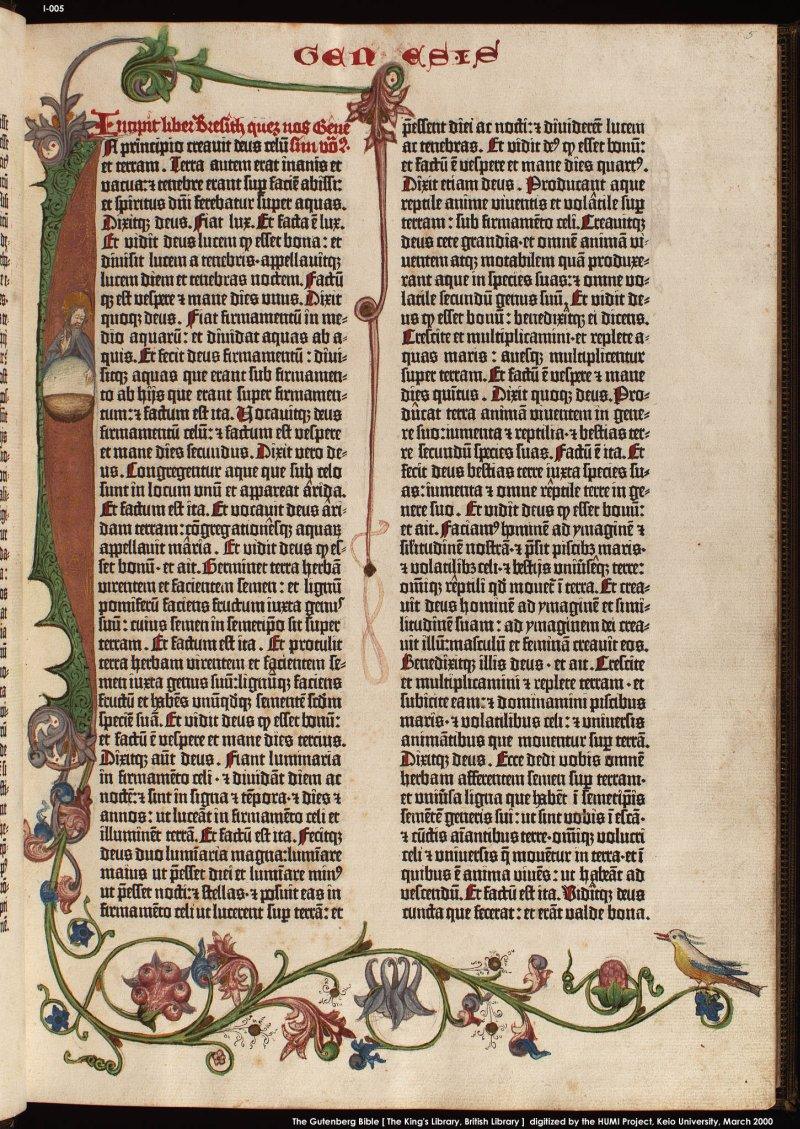 I-005
GENESIS
5
Incipit liber Bresith quez nos Gene
sim vo2.
N principio creavit deus celū
et terram. Terra autem erat inanis et
vacua: ⁊ tenebre erant sup̄ faciē abissi:
et spiritus dn̄i ferebatur super aquas.
Dixitqꝫ deus. Fiat lux. Et facta ē lux.
Et vidit deus lucem ꝙ esset bona: et
divisit lucem a tenebris · appellavitqꝫ
lucem diem et tenebras noctem. Factū
qꝫ est vespere ⁊ mane dies unus. Dixit
quoqꝫ deus. Fiat firmamentū in me⸗
dio aquarū: et dividat aquas ab a⸗
quis. Et fecit deus firmamentū: divi⸗
sitqꝫ aquas que erant sub firmamen⸗
to ab hijs que erant super firmamen⸗
tum: ⁊ factum est ita. Vocavitqꝫ deus
firmamentū celū: ⁊ factum est vespere
et mane dies secundus. Dixit vero de⸗
us. Congregentur aque que sub celo
sunt in locum unū et appareat arida.
Et factum est ita. Et vocavit deus ari⸗
dam terram: cōgregationesqꝫ aquaꝝ
appellavit maria. Et vidit deus ꝙ es⸗
set bonū · et ait. Germinet terra herbā
virentem et facientem semen: et lignū
pomiferū faciens fructum iuxta genuꝰ
suū: cuius semen in semetipō sit super
terram. Et factum est ita. Et protulit
terra herbam virentem et facientem se⸗
men iuxta genus suū: lignūqꝫ faciens
fructū et habēs unūqdqꝫ sementē scdm
speciē suā. Et vidit deus ꝙ esset bonū:
et factū ē vespere et mane dies tercius.
Dixitqꝫ aūt deus. Fiant luminaria
in firmamēto celi · ⁊ dividāt diem ac
noctē: ⁊ sint in signa ⁊ tēpora · ⁊ dies ⁊
annos: ut luceāt in firmamēto celi et
illuminēt terrā. Et factū est ita. Fecitqꝫ
deus duo lumīaria magna: lumīare
maius ut p̄esset diei et lumīare minꝰ
ut p̄esset nocti: ⁊ stellas · ⁊ posuit eas in
firmamēto celi ut lucerent sup̄ terrā: et
p̄essent diei ac nocti: ⁊ dividerēt lucem
ac tenebras. Et vidit deꝰ ꝙ esset bonū:
et factū ē vespere et mane dies quartꝰ.
Dixit etiam deus. Producant aque
reptile anime viventis et volatile sup̄
terram: sub firmamēto celi. Creavitqꝫ
deus cete grandia · et omnē animā vi⸗
ventem atqꝫ motabilem quā produxe⸗
rant aque in species suas: ⁊ omne vo⸗
latile secundū genus suū. Et vidit de⸗
us ꝙ esset bonū: benedixitqꝫ ei dicens.
Crescite et multiplicamini · et replete a⸗
quas maris: avesqꝫ multiplicentur
super terram. Et factū ē vespere ⁊ mane
dies quītus. Dixit quoqꝫ deus. Pro⸗
ducat terra animā viventem in gene⸗
re suo: iumenta ⁊ reptilia · ⁊ bestias ter⸗
re secundū species suas. Factū ē ita. Et
fecit deus bestias terre iuxta species su⸗
as: iumenta ⁊ omne reptile terre in ge⸗
nere suo. Et vidit deus ꝙ esset bonū:
et ait. Faciamꝰ hominē ad ymaginē ⁊
silitudinē nostrā · ⁊ p̄sit piscibꝫ maris ·
⁊ volatilibꝫ celi · ⁊ bestijs univseqꝫ terre:
omīqꝫ reptili qd movet̄ ī terra. Et crea⸗
vit deus hominē ad ymaginē et simi⸗
litudinē suam: ad ymaginem dei crea⸗
vit illū: masculū et feminā creavit eos.
Benedixitqꝫ illis deus · et ait. Crescite
et multiplicamini ⁊ replete terram · et
subicite eam: ⁊ dominamini piscibus
maris · ⁊ volatilibus celi: ⁊ universis
animātibus que moventur sup̄ terrā.
Dixitqꝫ deus. Ecce dedi vobis omnē
herbam afferentem semen sup̄ terram ·
et univsa ligna que habēt ī semetipīs
semētē generis sui: ut sint vobis ī escā ·
⁊ cūctis aīantibus terre · omīqꝫ volucri
celi ⁊ universis q̄ movētur in terra · et ī
quibus ē anima vivēs: ut habeāt ad
vescendū. Et factū est ita. Viditqꝫ deus
cuncta que fecerat: et erāt valde bona.
The Gutenberg Bible [ The King's Library, British Library ] digitized by the HUMI Project, Keio University, March 2000